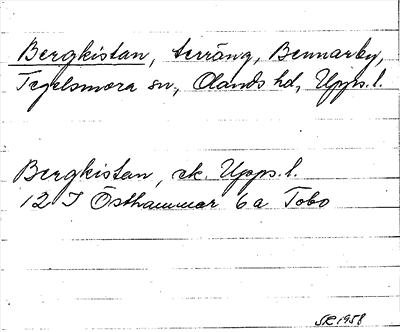 Bergkistan, terräng, Bennarby,
Tegelsmora sn, Olands hd, Upps. l.
Bergkistan, ek. Upps. l.
12 I Östhammar 6a Tobo
SR 1958